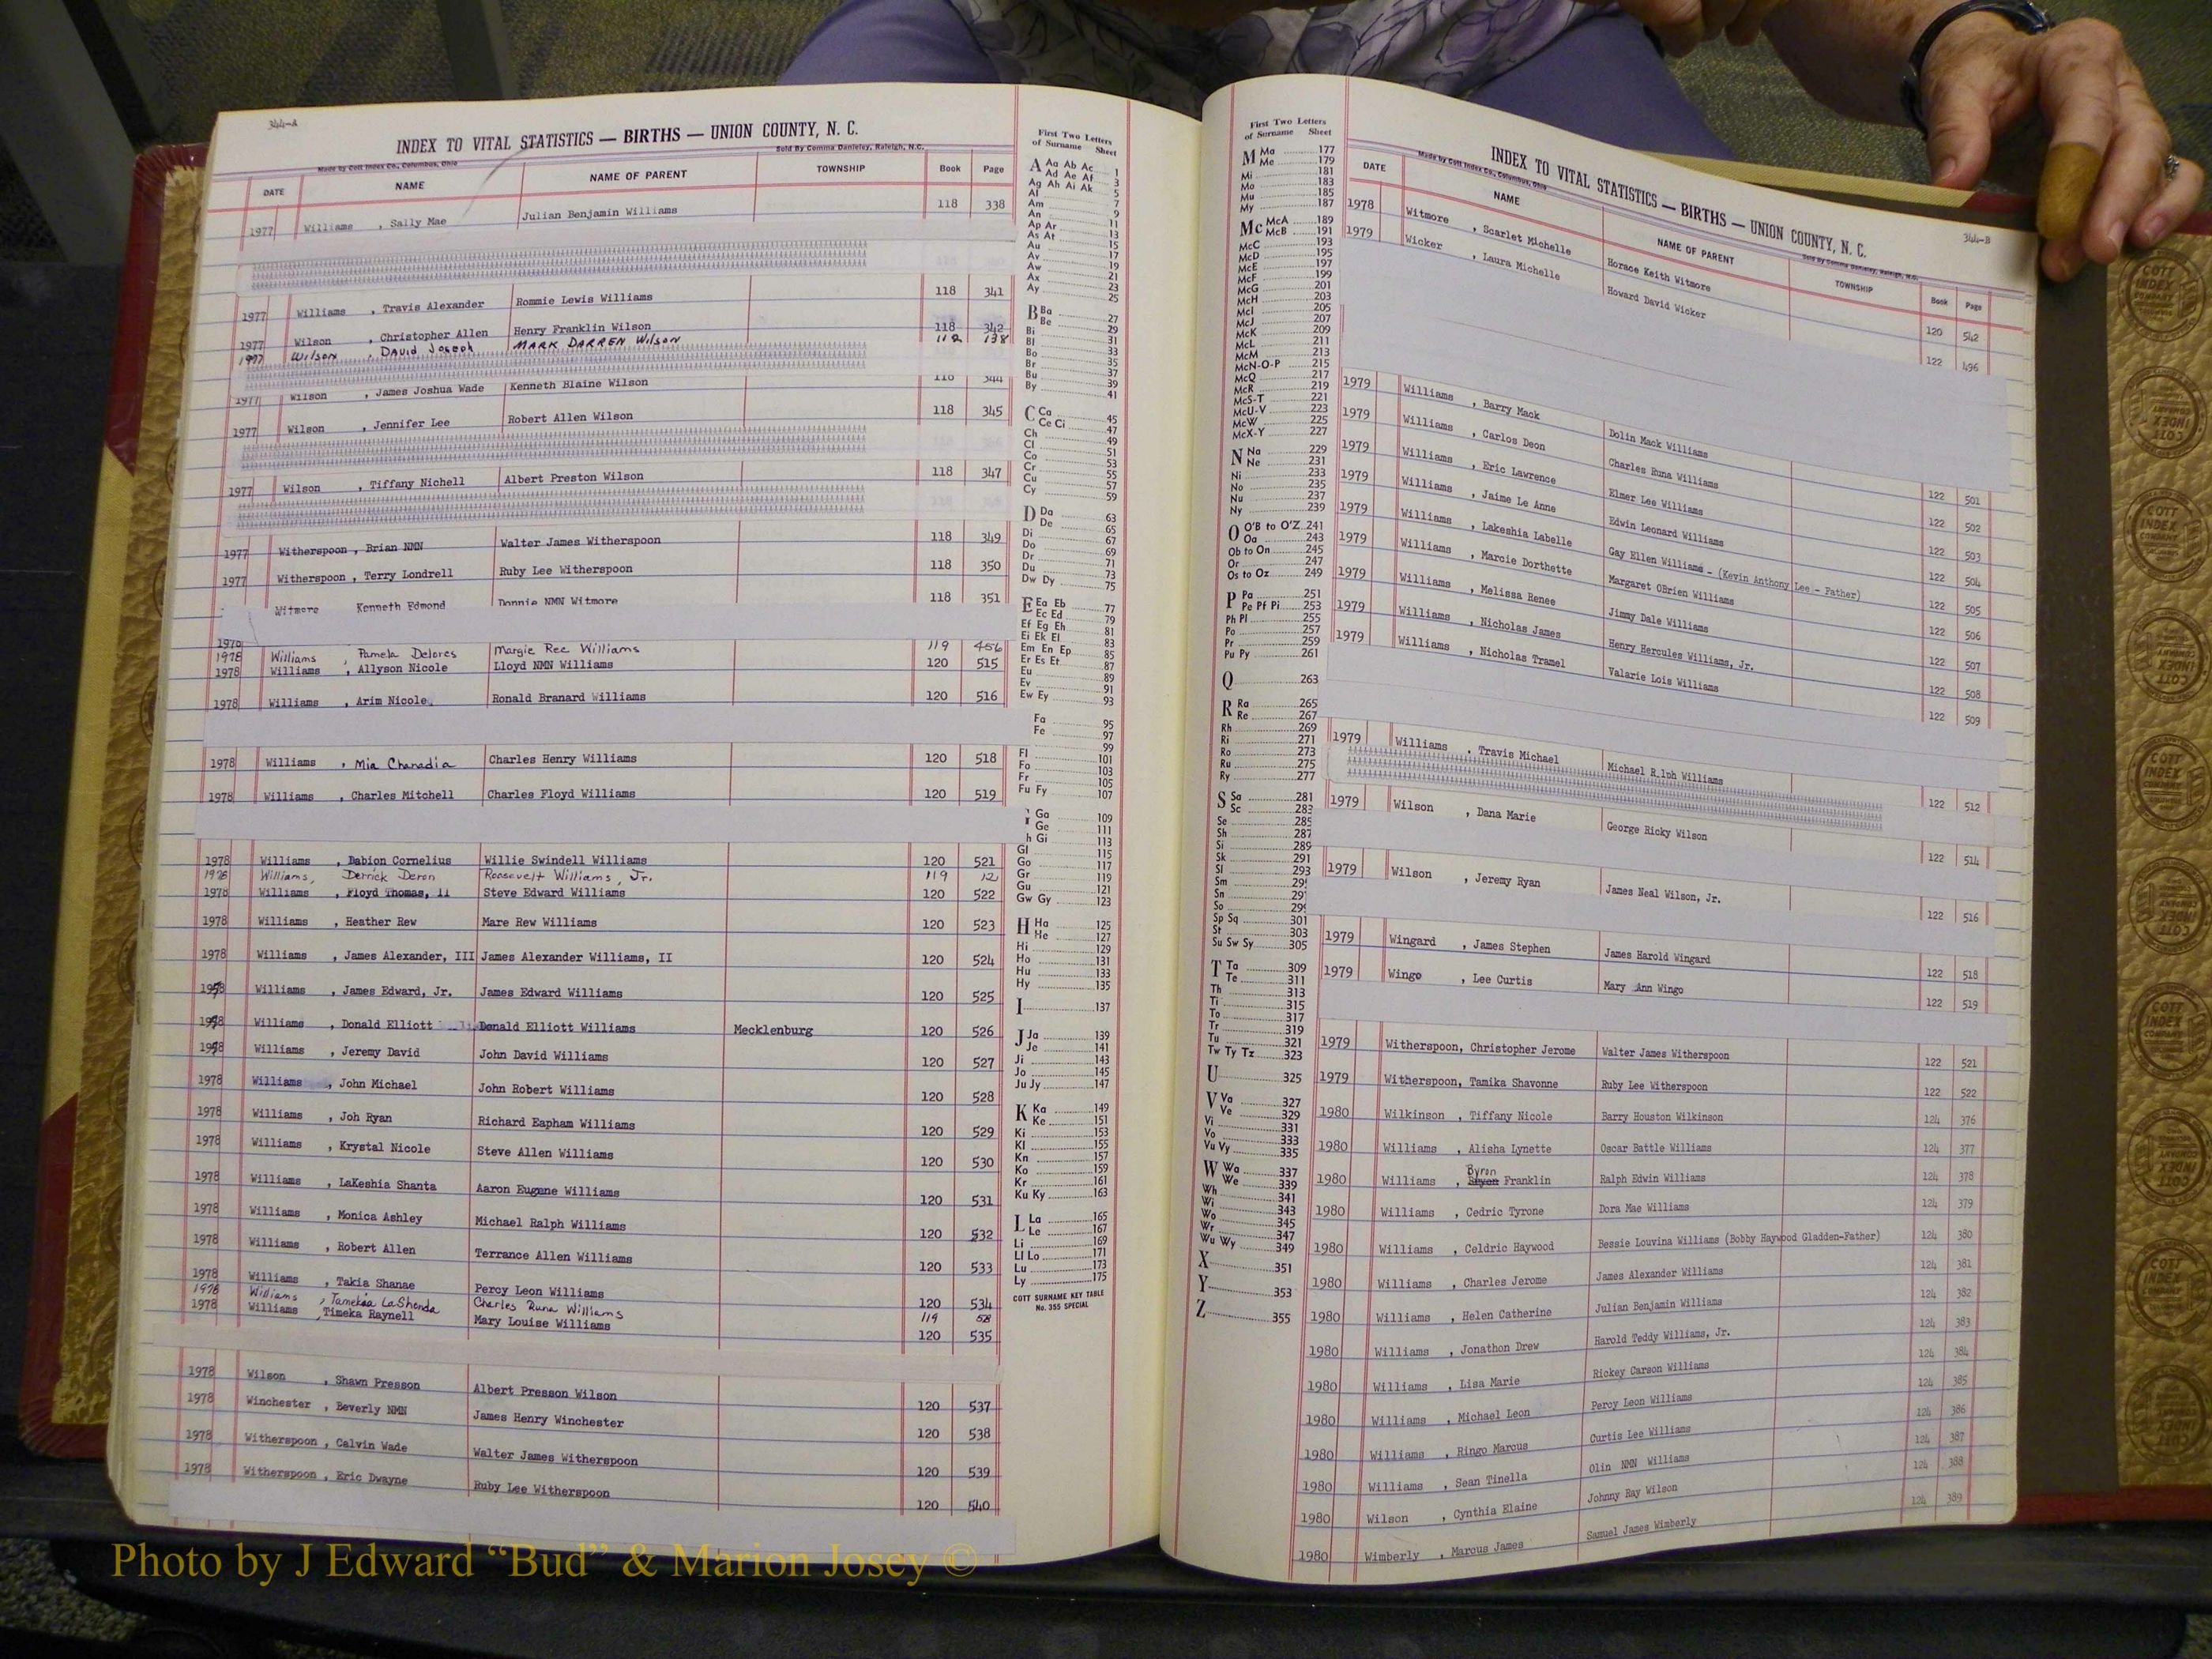 344-A
INDEX TO VITAL STATISTICS — BIRTHS — UNION COUNTY, N. C.
Made by Cott Index Co., Columbus, Ohio Sold By Comma Danieley, Raleigh, N.C.
DATE NAME NAME OF PARENT TOWNSHIP Book Page
1977 Williams , Sally Mae Julian Benjamin Williams 118 338
1977 Williams , Travis Alexander Rommie Lewis Williams 118 341
1977 Wilson , Christopher Allen Henry Franklin Wilson 118 342
1977 Wilson , David Joseph MARK DARREN Wilson 118 138
1977 Wilson , James Joshua Wade Kenneth Blaine Wilson 118 344
1977 Wilson , Jennifer Lee Robert Allen Wilson 118 345
1977 Wilson , Tiffany Nichell Albert Preston Wilson 118 347
1977 Witherspoon , Brian NMN Walter James Witherspoon 118 349
1977 Witherspoon , Terry Londrell Ruby Lee Witherspoon 118 350
Witmore Kenneth Edmond Donnie NMN Witmore 118 351
1978
1978 Williams , Pamela Delores Margie Ree Williams 119 456
1978 Williams , Allyson Nicole Lloyd NMN Williams 120 515
1978 Williams , Arim Nicole Ronald Branard Williams 120 516
1978 Williams , Mia Chanadia Charles Henry Williams 120 518
1978 Williams , Charles Mitchell Charles Floyd Williams 120 519
1978 Williams , Dabion Cornelius Willie Swindell Williams 120 521
1978 Williams, Derrick Deron Roosevelt Williams, Jr. 119 12
1978 Williams , Floyd Thomas, II Steve Edward Williams 120 522
1978 Williams , Heather Rew Mare Rew Williams 120 523
1978 Williams , James Alexander, III James Alexander Williams, II 120 524
1978 Williams , James Edward, Jr. James Edward Williams 120 525
1978 Williams , Donald Elliott Donald Elliott Williams Mecklenburg 120 526
1978 Williams , Jeremy David John David Williams 120 527
1978 Williams , John Michael John Robert Williams 120 528
1978 Williams , Joh Ryan Richard Eapham Williams 120 529
1978 Williams , Krystal Nicole Steve Allen Williams 120 530
1978 Williams , LaKeshia Shanta Aaron Eugene Williams 120 531
1978 Williams , Monica Ashley Michael Ralph Williams 120 532
1978 Williams , Robert Allen Terrance Allen Williams 120 533
1978 Williams , Takia Shanae Percy Leon Williams 120 534
1978 Williams , Tamekia LaShenda Charles Runa Williams 119 58
1978 Williams , Timeka Raynell Mary Louise Williams 120 535
1978 Wilson , Shawn Presson Albert Presson Wilson 120 537
1978 Winchester , Beverly NMN James Henry Winchester 120 538
1978 Witherspoon , Calvin Wade Walter James Witherspoon 120 539
1978 Witherspoon , Eric Dwayne Ruby Lee Witherspoon 120 540
First Two Letters
of Surname Sheet
A Aa Ab Ac 1
Ad Ae Af 3
Ag Ah Ai Ak 5
Al 7
Am 9
An 11
Ap Ar 13
As At 15
Au 17
Av 19
Aw 21
Ax 23
Ay 25
B Ba 27
Be 29
Bi 31
Bl 33
Bo 35
Br 37
Bu 39
By 41
C Ca 45
Ce Ci 47
Ch 49
Cl 51
Co 53
Cr 55
Cu 57
Cy 59
D Da 63
De 65
Di 67
Do 69
Dr 71
Du 73
Dw Dy 75
E Ea Eb 77
Ec Ed 79
Ef Eg Eh 81
Ei Ek El 83
Em En Ep 85
Er Es Et 87
Eu 89
Ev 91
Ew Ey 93
Fa 95
Fe 97
Fl 99
Fo 101
Fr 103
Fu Fy 105
107
Ga 109
Ge 111
h Gi 113
Gl 115
Go 117
Gr 119
Gu 121
Gw Gy 123
H Ha 125
He 127
Hi 129
Ho 131
Hu 133
Hy 135
I 137
J Ja 139
Je 141
Ji 143
Jo 145
Ju Jy 147
K Ka 149
Ke 151
Ki 153
Kl 155
Kn 157
Ko 159
Kr 161
Ku Ky 163
L La 165
Le 167
Li 169
Ll Lo 171
Lu 173
Ly 175
COTT SURNAME KEY TABLE
No. 355 SPECIAL
First Two Letters
of Surname Sheet
M Ma 177
Me 179
Mi 181
Mo 183
Mu 185
My 187
Mc McA 189
McB 191
McC 193
McD 195
McE 197
McF 199
McG 201
McH 203
McI 205
McJ 207
McK 209
McL 211
McM 213
McN-O-P 215
McQ 217
McR 219
McS-T 221
McU-V 223
McW 225
McX-Y 227
N Na 229
Ne 231
Ni 233
No 235
Nu 237
Ny 239
O O'B to O'Z 241
Oa 243
Ob to On 245
Or 247
Os to Oz 249
P Pa 251
Pe Pf Pi 253
Ph Pl 255
Po 257
Pr 259
Pu Py 261
Q 263
R Ra 265
Re 267
Rh 269
Ri 271
Ro 273
Ru 275
Ry 277
S Sa 281
Sc 283
Se 285
Sh 287
Si 289
Sk 291
Sl 293
Sm 29
Sn 29
So 29
Sp Sq 301
St 303
Su Sw Sy 305
T Ta 309
Te 311
Th 313
Ti 315
To 317
Tr 319
Tu 321
Tw Ty Tz 323
U 325
V Va 327
Ve 329
Vi 331
Vo 333
Vu Vy 335
W Wa 337
We 339
Wh 341
Wi 343
Wo 345
Wr 347
Wu Wy 349
X 351
Y 353
Z 355
344-B
INDEX TO VITAL STATISTICS — BIRTHS — UNION COUNTY, N. C.
Made by Cott Index Co., Columbus, Ohio Sold By Comma Danieley, Raleigh, N.C.
DATE NAME NAME OF PARENT TOWNSHIP Book Page
1978 Witmore , Scarlet Michelle Horace Keith Witmore 120 542
1979 Wicker , Laura Michelle Howard David Wicker 122 496
1979 Williams , Barry Mack Dolin Mack Williams 122 501
1979 Williams , Carlos Deon Charles Runa Williams 122 502
1979 Williams , Eric Lawrence Elmer Lee Williams 122 503
1979 Williams , Jaime Le Anne Edwin Leonard Williams 122 504
1979 Williams , Lakeshia Labelle Gay Ellen Williams - (Kevin Anthony Lee - Father) 122 505
1979 Williams , Marcie Dorthette Margaret OBrien Williams 122 506
1979 Williams , Melissa Renee Jimmy Dale Williams 122 507
1979 Williams , Nicholas James Henry Hercules Williams, Jr. 122 508
1979 Williams , Nicholas Tramel Valarie Lois Williams 122 509
1979 Williams , Travis Michael Michael R.lph Williams 122 512
1979 Wilson , Dana Marie George Ricky Wilson 122 514
1979 Wilson , Jeremy Ryan James Neal Wilson, Jr. 122 516
1979 Wingard , James Stephen James Harold Wingard 122 518
1979 Wingo , Lee Curtis Mary Ann Wingo 122 519
1979 Witherspoon, Christopher Jerome Walter James Witherspoon 122 521
1979 Witherspoon, Tamika Shavonne Ruby Lee Witherspoon 122 522
1980 Wilkinson , Tiffany Nicole Barry Houston Wilkinson 124 376
1980 Williams , Alisha Lynette Oscar Battle Williams 124 377
Byron
1980 Williams , Franklin Ralph Edwin Williams 124 378
1980 Williams , Cedric Tyrone Dora Mae Williams 124 379
1980 Williams , Celdric Haywood Bessie Louvina Williams (Bobby Haywood Gladden-Father) 124 380
1980 Williams , Charles Jerome James Alexander Williams 124 381
1980 Williams , Helen Catherine Julian Benjamin Williams 124 382
1980 Williams , Jonathon Drew Harold Teddy Williams, Jr. 124 383
1980 Williams , Lisa Marie Rickey Carson Williams 124 384
1980 Williams , Michael Leon Percy Leon Williams 124 385
1980 Williams , Ringo Marcus Curtis Lee Williams 124 386
1980 Williams , Sean Tinella Olin NMN Williams 124 387
1980 Wilson , Cynthia Elaine Johnny Ray Wilson 124 388
1980 Wimberly , Marcus James Samuel James Wimberly 124 389
COTT INDEX COMPANY
Photo by J Edward “Bud” & Marion Josey ©